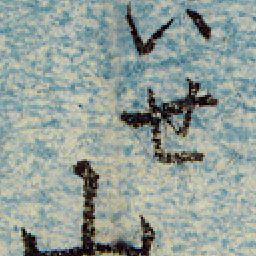 いせ
山